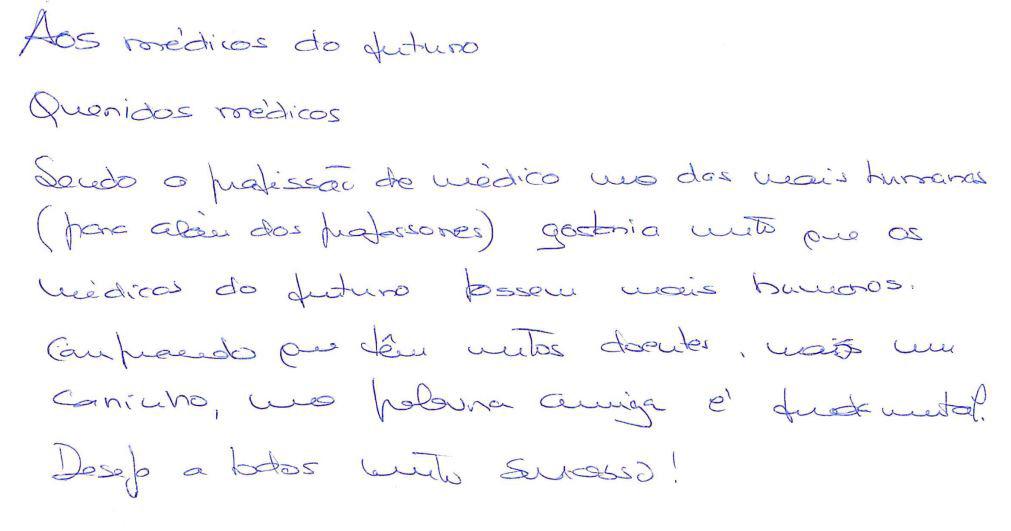 Aos médicos do futuro
Queridos médicos
Sendo a profissão de médico uma das mais humanas
(para além dos professores) gostaria muito que os
médicos do futuro fossem mais humanos.
Compreendo que têm muitos doentes, mas um
carinho, uma palavra amiga é fundamental.
Desejo a todos muito sucesso!